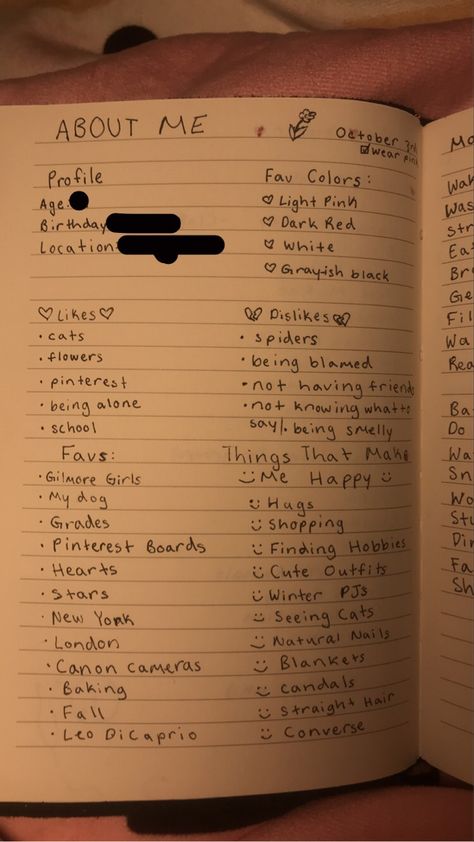 ABOUT ME
October 3rd
wear pink
Profile
Age:
Birthday
Location:
Fav Colors:
Light Pink
Dark Red
White
Grayish black
Likes
• cats
• flowers
• pinterest
• being alone
• school
Dislikes
• spiders
• being blamed
• not having friends
• not knowing what to
say/. being smelly
Favs:
• Gilmore Girls
• My dog
• Grades
• Pinterest Boards
• Hearts
• Stars
• New York
• London
• Canon Cameras
• Baking
• Fall
• Leo DiCaprio
Things That Make
Me Happy
Hugs
Shopping
Finding Hobbies
Cute Outfits
Winter PJs
Seeing Cats
Natural Nails
Blankets
Candals
Straight Hair
Converse